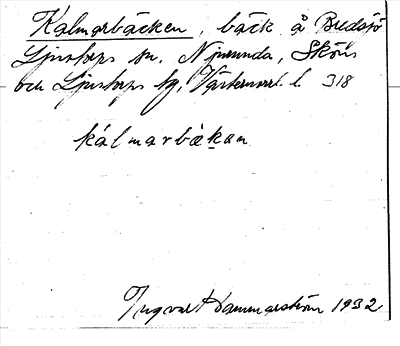 Kalmarbäcken, bäck å Bredsjö
Ljustorps sn. Njurunda, Sköns
och Ljustorps tg. Västernorrl. l. 318
kálmarbäkan
Ingvar Hammarström 1932